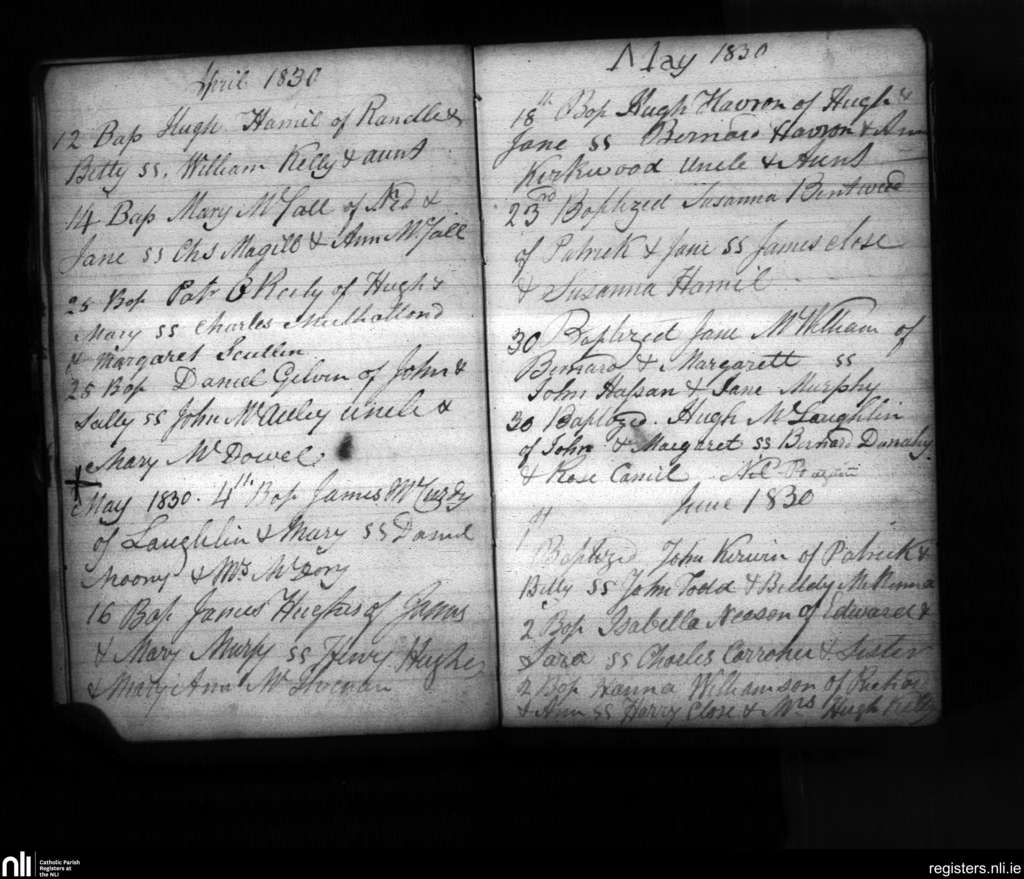 April 1830
12 Bap Hugh Hamil of Randle &
Betty ss. William Kelly & aunt
14 Bap Mary McFall of Ned &
Jane ss Chs Magill & Ann McFall
25 Bap Patr O Reily of Hugh &
Mary ss Charles Mulhallond
& Margaret Scullin
25 Bap Daniel Gilvin of John &
Sally ss John McAuley uncle &
Mary McDowel
May 1830. 4th Bap James McCurdy
of Laughlin & Mary ss Daniel
Moony & Mrs
16 Bap James Hughes of James
& Mary Murpy ss Henry Hughes
& Mary Ann
May 1830
18th Bap Hugh Havron of Hugh &
Jane ss Bernard Havron & Ann
Kirkwood Uncle & Aunt
23rd Baptized Susanna Bentwood
of Patrick & Jane ss James Close
& Susanna Hamil
30 Baptized Jane McWilliam of
Bernard & Margarett ss
John Hassan & Jane Murphy
30 Baptized. Hugh McLaughlin
of John & Margaret ss Bernard
& Rose
June 1830
1st
Baptized John Kerwin of Patrick &
Betty ss John Todd & McKenna
2 Bap Isabella Neeson of Edward &
Sara ss Charles & Sister
2 Bap Hanna Williamson of
& Ann ss Harry Close & Mrs Hugh Kelly
nli
Catholic Parish
Registers at
the NLI
registers.nli.ie